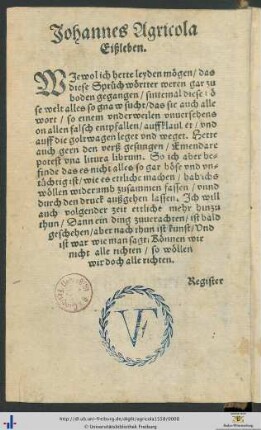 Johannes Agricola
Eißleben.
WJewol ich hette leyden mögen/ das
diese Sprüchwörtter weren gar zu
boden gegangen/ sintemal diese
se welt alles so gnaw sucht/ das sie auch alle
wort/ so einem underweilen unversehens
on allen falsch entpfallen/ auffklaubt er/ und
auff die goltwagen leget und weget. Hette
auch gern den verß gesungen/ Emendare
potest una litura librum. So ich aber be-
finde das es nicht alles so gar böse und un-
tüchtig ist/ wie es etliche machen/ hab ichs
wöllen widerumb zusamen fassen/ unnd
durch den druck außgehen lassen. Jch will
auch volgender zeit ettliche mehr hinzu
thun/ Dann ein ding zuverachten/ ist bald
geschehen/ aber nach thun ist kunst/ Und
ist war wie man sagt: Können wir
nicht alle tichten/ so wöllen
wir doch alle richten.
Register
VF
http://dl.ub.uni-freiburg.de/diglit/agricola1558/0008
© Universitätsbibliothek Freiburg